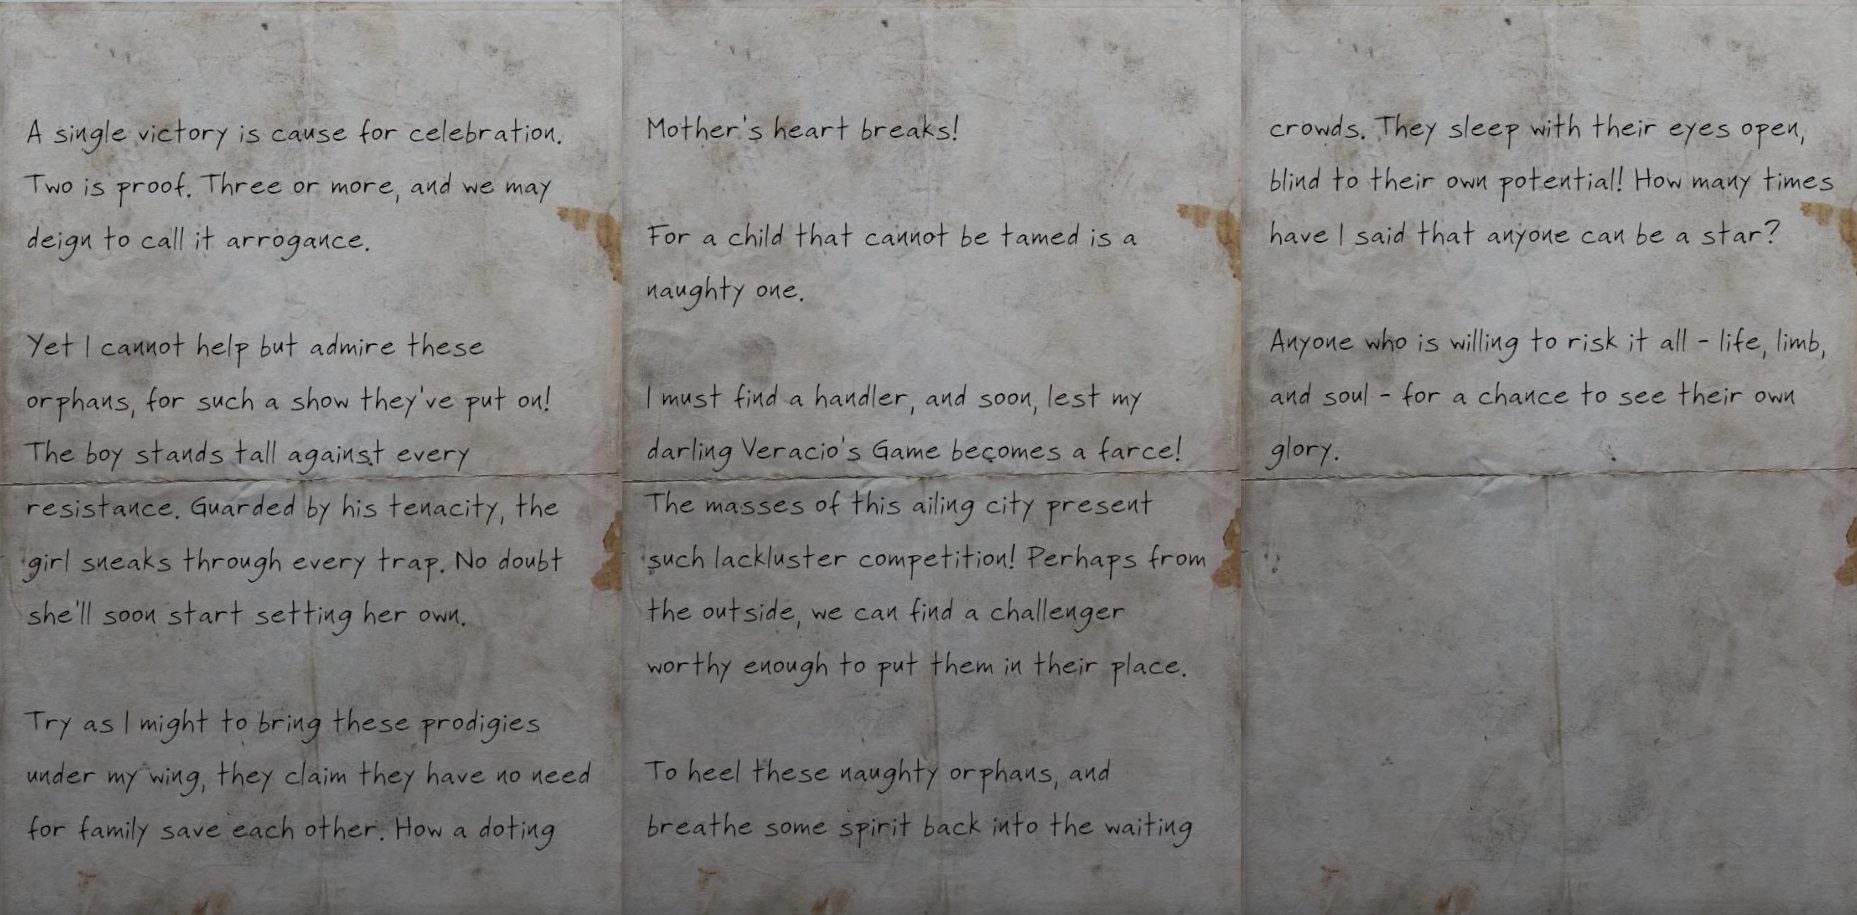 A single victory is cause for celebration.
Two is proof. Three or more, and we may
deign to call it arrogance.
Yet I cannot help but admire these
orphans, for such a show they've put on!
The boy stands tall against every
resistance. Guarded by his tenacity, the
girl sneaks through every trap. No doubt
she'll soon start setting her own.
Try as I might to bring these prodigies
under my wing, they claim they have no need
for family save each other. How a doting
Mother's heart breaks!
For a child that cannot be tamed is a
naughty one.
I must find a handler, and soon, lest my
darling Veracio's Game becomes a farce!
The masses of this ailing city present
such lackluster competition! Perhaps from
the outside, we can find a challenger
worthy enough to put them in their place.
To heel these naughty orphans, and
breathe some spirit back into the waiting
crowds. They sleep with their eyes open,
blind to their own potential! How many times
have I said that anyone can be a star?
Anyone who is willing to risk it all - life, limb,
and soul - for a chance to see their own
glory.